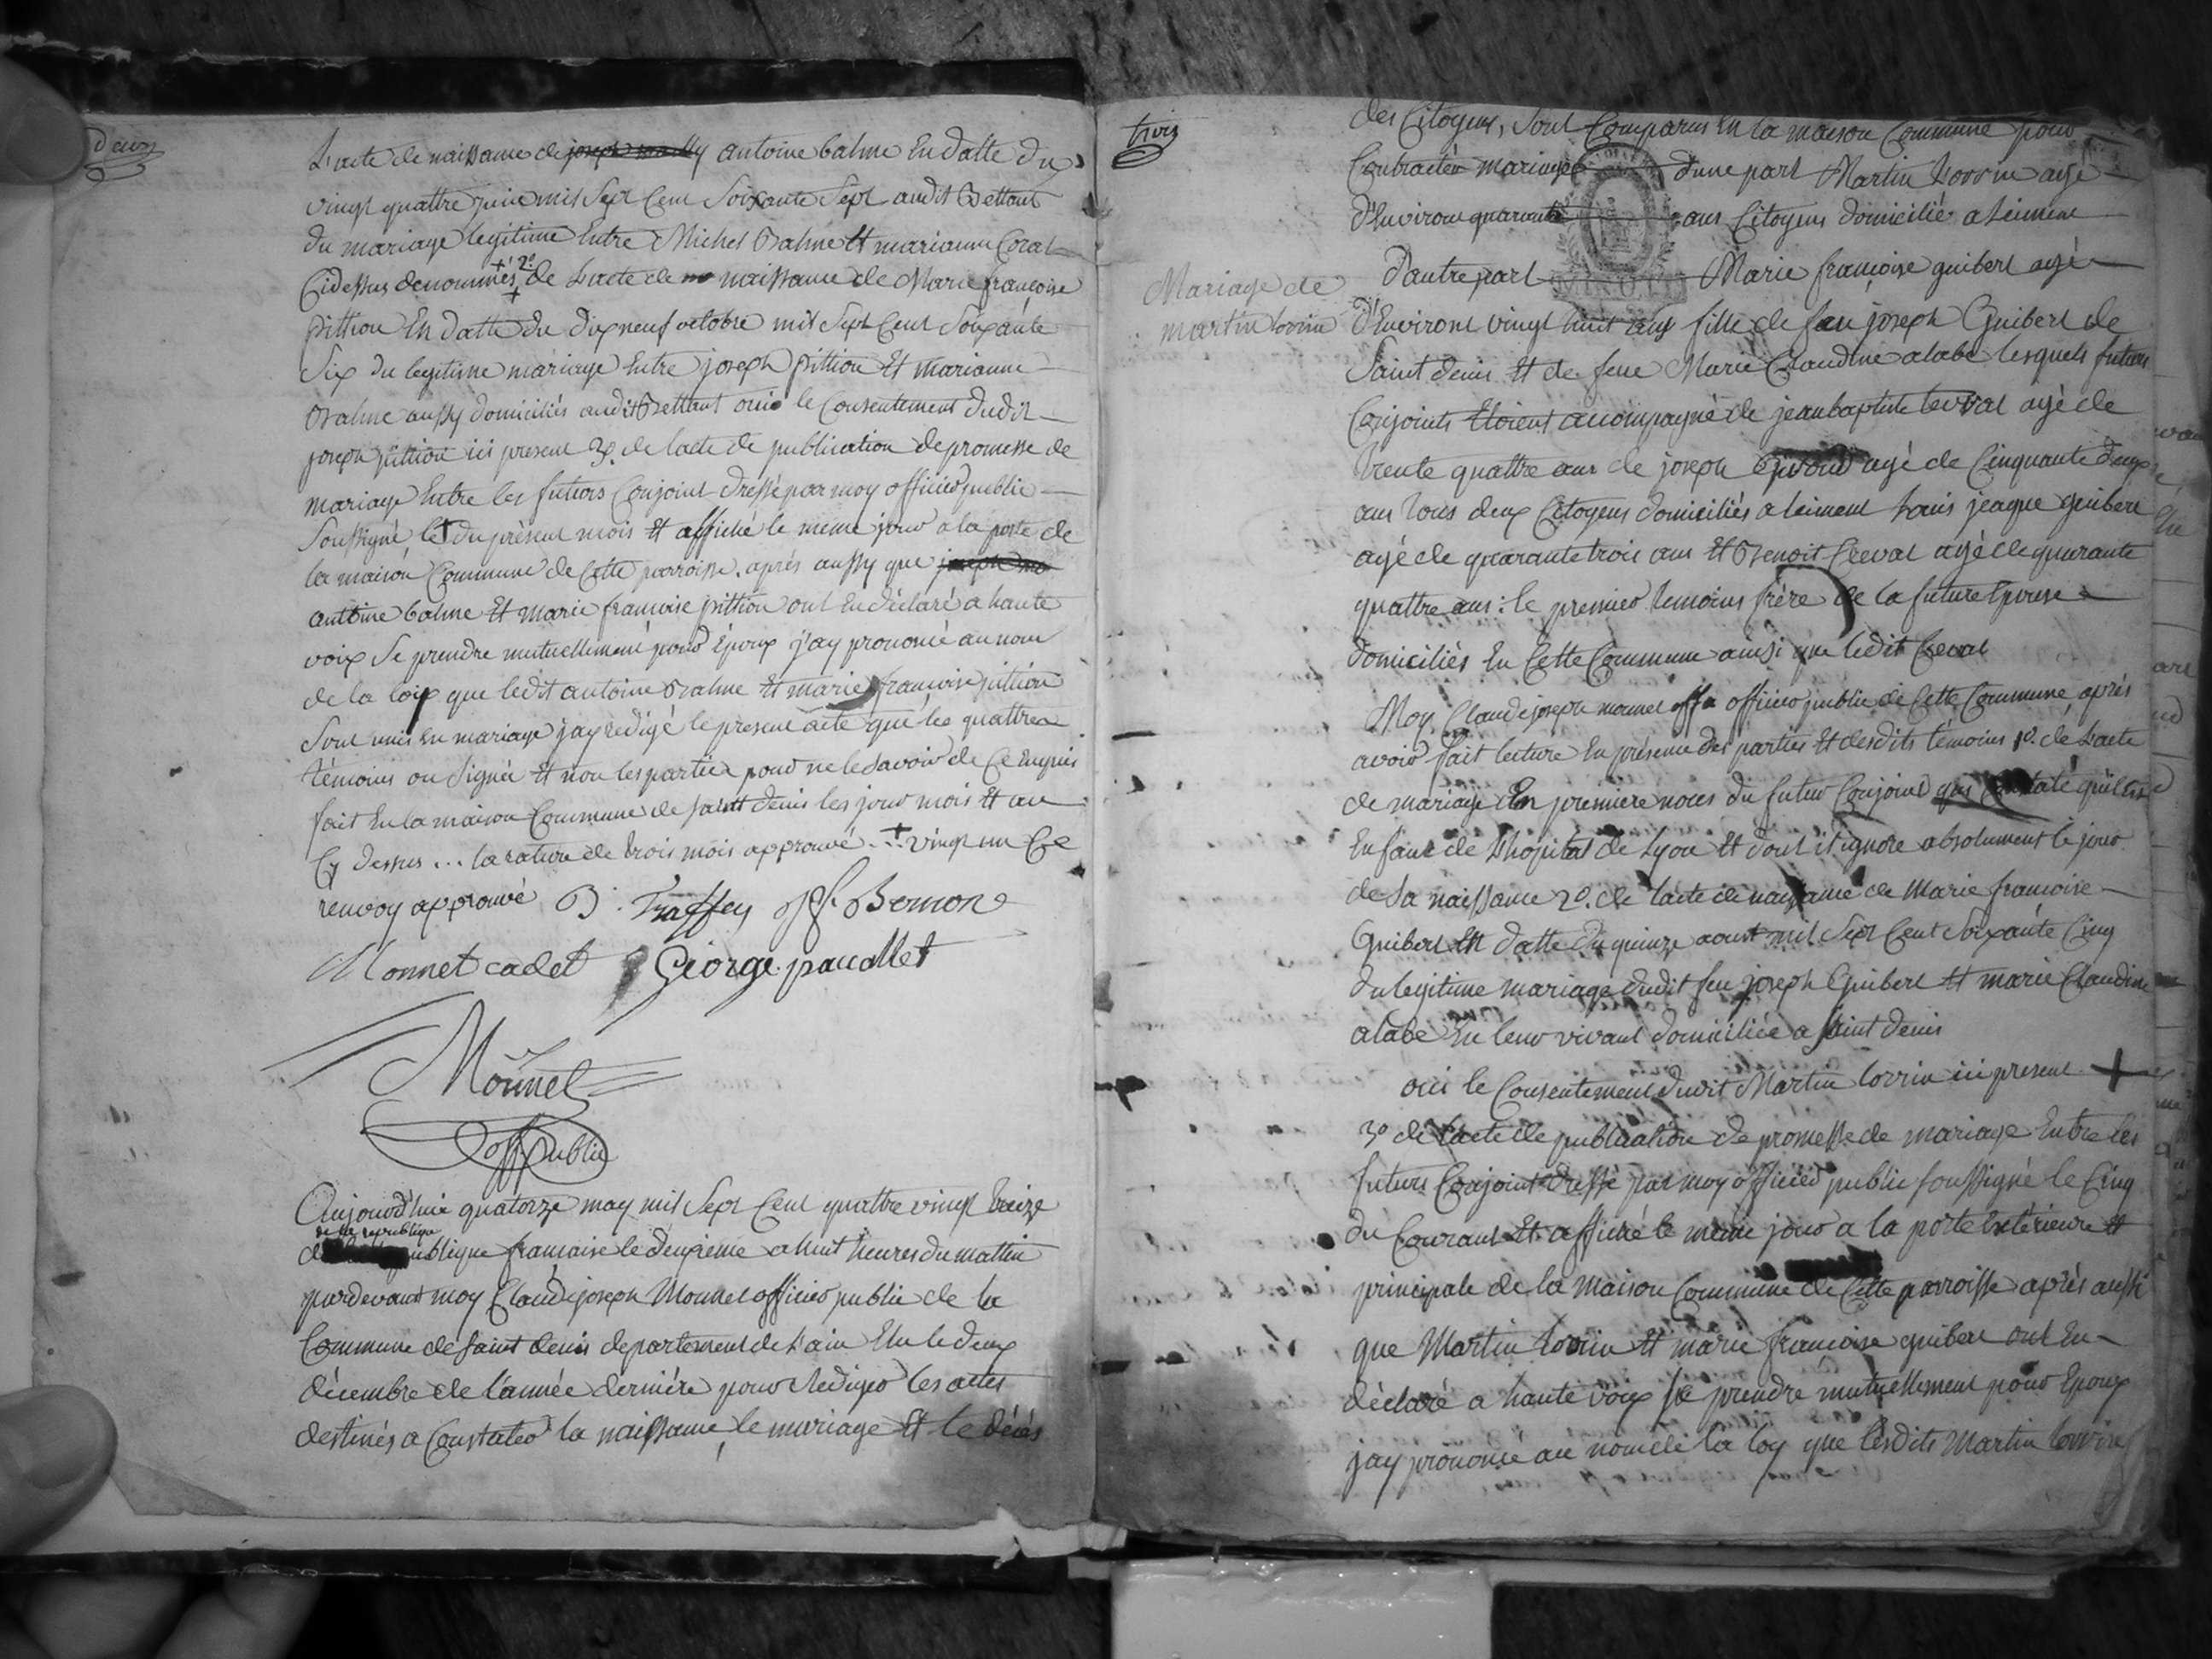 deux
L'acte de naissance de joseph antoine balme En datte du
vingt quattre juin mil Sept Cent Soixante Sept audit Bettant
du mariage legitime Entre Michel Balme Et marianne Coral
Cidessus denommés 2º de L'acte de naissance de Marie francoise
pittion En datte du dixneuf octobre mil Sept Cent Soixante
Six du legitime mariage Entre joseph pittion Et marianne
Balme aussy domiciliés audit Bettant oui le Consentement dudit
joseph pittion ici present 3º. de lacte de publication de promesse de
mariage Entre les futurs Conjoint dressé par moy officier public
Soussigné le du présent mois Et affiché le meme jour a la porte de
la maison Commune de Cette parroisse. après aussy que
antoine balme Et marie francoise pittion ont En déclaré a haute
voix Se prendre mutuellement pour Epoux j'ay prononcé au nom
de la loix que ledit antoine Balme Et marie francoise pittion
Sont unis En mariage jay redigé le present acte que les quattre
témoins on Signée Et non les parties pour ne le Savoir de Ce Enquis
fait En la maison Commune de Saint denis les jour mois Et an
Cy dessus ... la rature de trois mois approuvé. vingt un
renvoy approuvé B. Traffey Bernon
Monnet cadet George paucallet
Monnet
off public
Aujourd'hui quatorze may mil Sept Cent quattre vingt treize
de la republique
publique francaise le deuxieme a huit heures du mattin
pardevant moy Claude joseph Monnet officier public de la
Commune de Saint denis departement de Lain Elu le deux
décembre de l'année dernière pour Rediger les actes
destinés a Constater la naissance, le mariage Et le décès
trois
des Citoyens, Sont Comparus En la maison Commune pour
Contracter mariage dune part Martin Lorrin agé
d'Environ quarante ans Citoyens domicilié a Leiment
dautre part Marie françoise guibert agé
Mariage de
martin lorrin
d'Environt vingt huit ans fille de feu joseph Guibert de
Saint denis Et de feue Marie Claudine alabe lesquels futurs
Conjoints Etoient accompagné de jean baptiste agé de
trente quattre ans de joseph agé de Cinquante deux
ans tous deux Citoyens domiciliés a leiment jeaque guibert
agé de quarante trois ans Et Benoit Creval agé de quarante
quattre ans : le premier temoins frère de la future Epouse
domiciliés En Cette Commune ainsi que ledit Creval
Moy Claude joseph monnet officier public de Cette Commune, après
avoir fait lecture En présence des parties Et desdits témoins 1º. de L'acte
de mariage En premiere noces du futur Conjoint qui Constate quil Est
Enfant de Lhopital de Lyon Et dont il ignore absolument le jour
de Sa naissance 2º. de lacte de naissance de Marie francoise
Guibert En datte du quinze aoust mil Sept Cent Soixante Cinq
du legitime mariage dudit feu joseph Guibert Et marie Claudine
alabe En leur vivant domiciliée a Saint denis
oui le Consentement dudit Martin lorrin ici present +
3º de Lacte de publication de promesse de mariage Entre les
futurs Conjoint dressé par moy officier public soussigné le Cinq
du Courant Et affiché le meme jour a la porte Extérieure Et
principale de la Maison Commune de Cette parroisse après aussi
que Martin lorrin Et marie francoise guibert ont En
déclaré a haute voix se prendre mutuellement pour Epoux
jay prononcé au nom de la loy que lesdits Martin lorrin